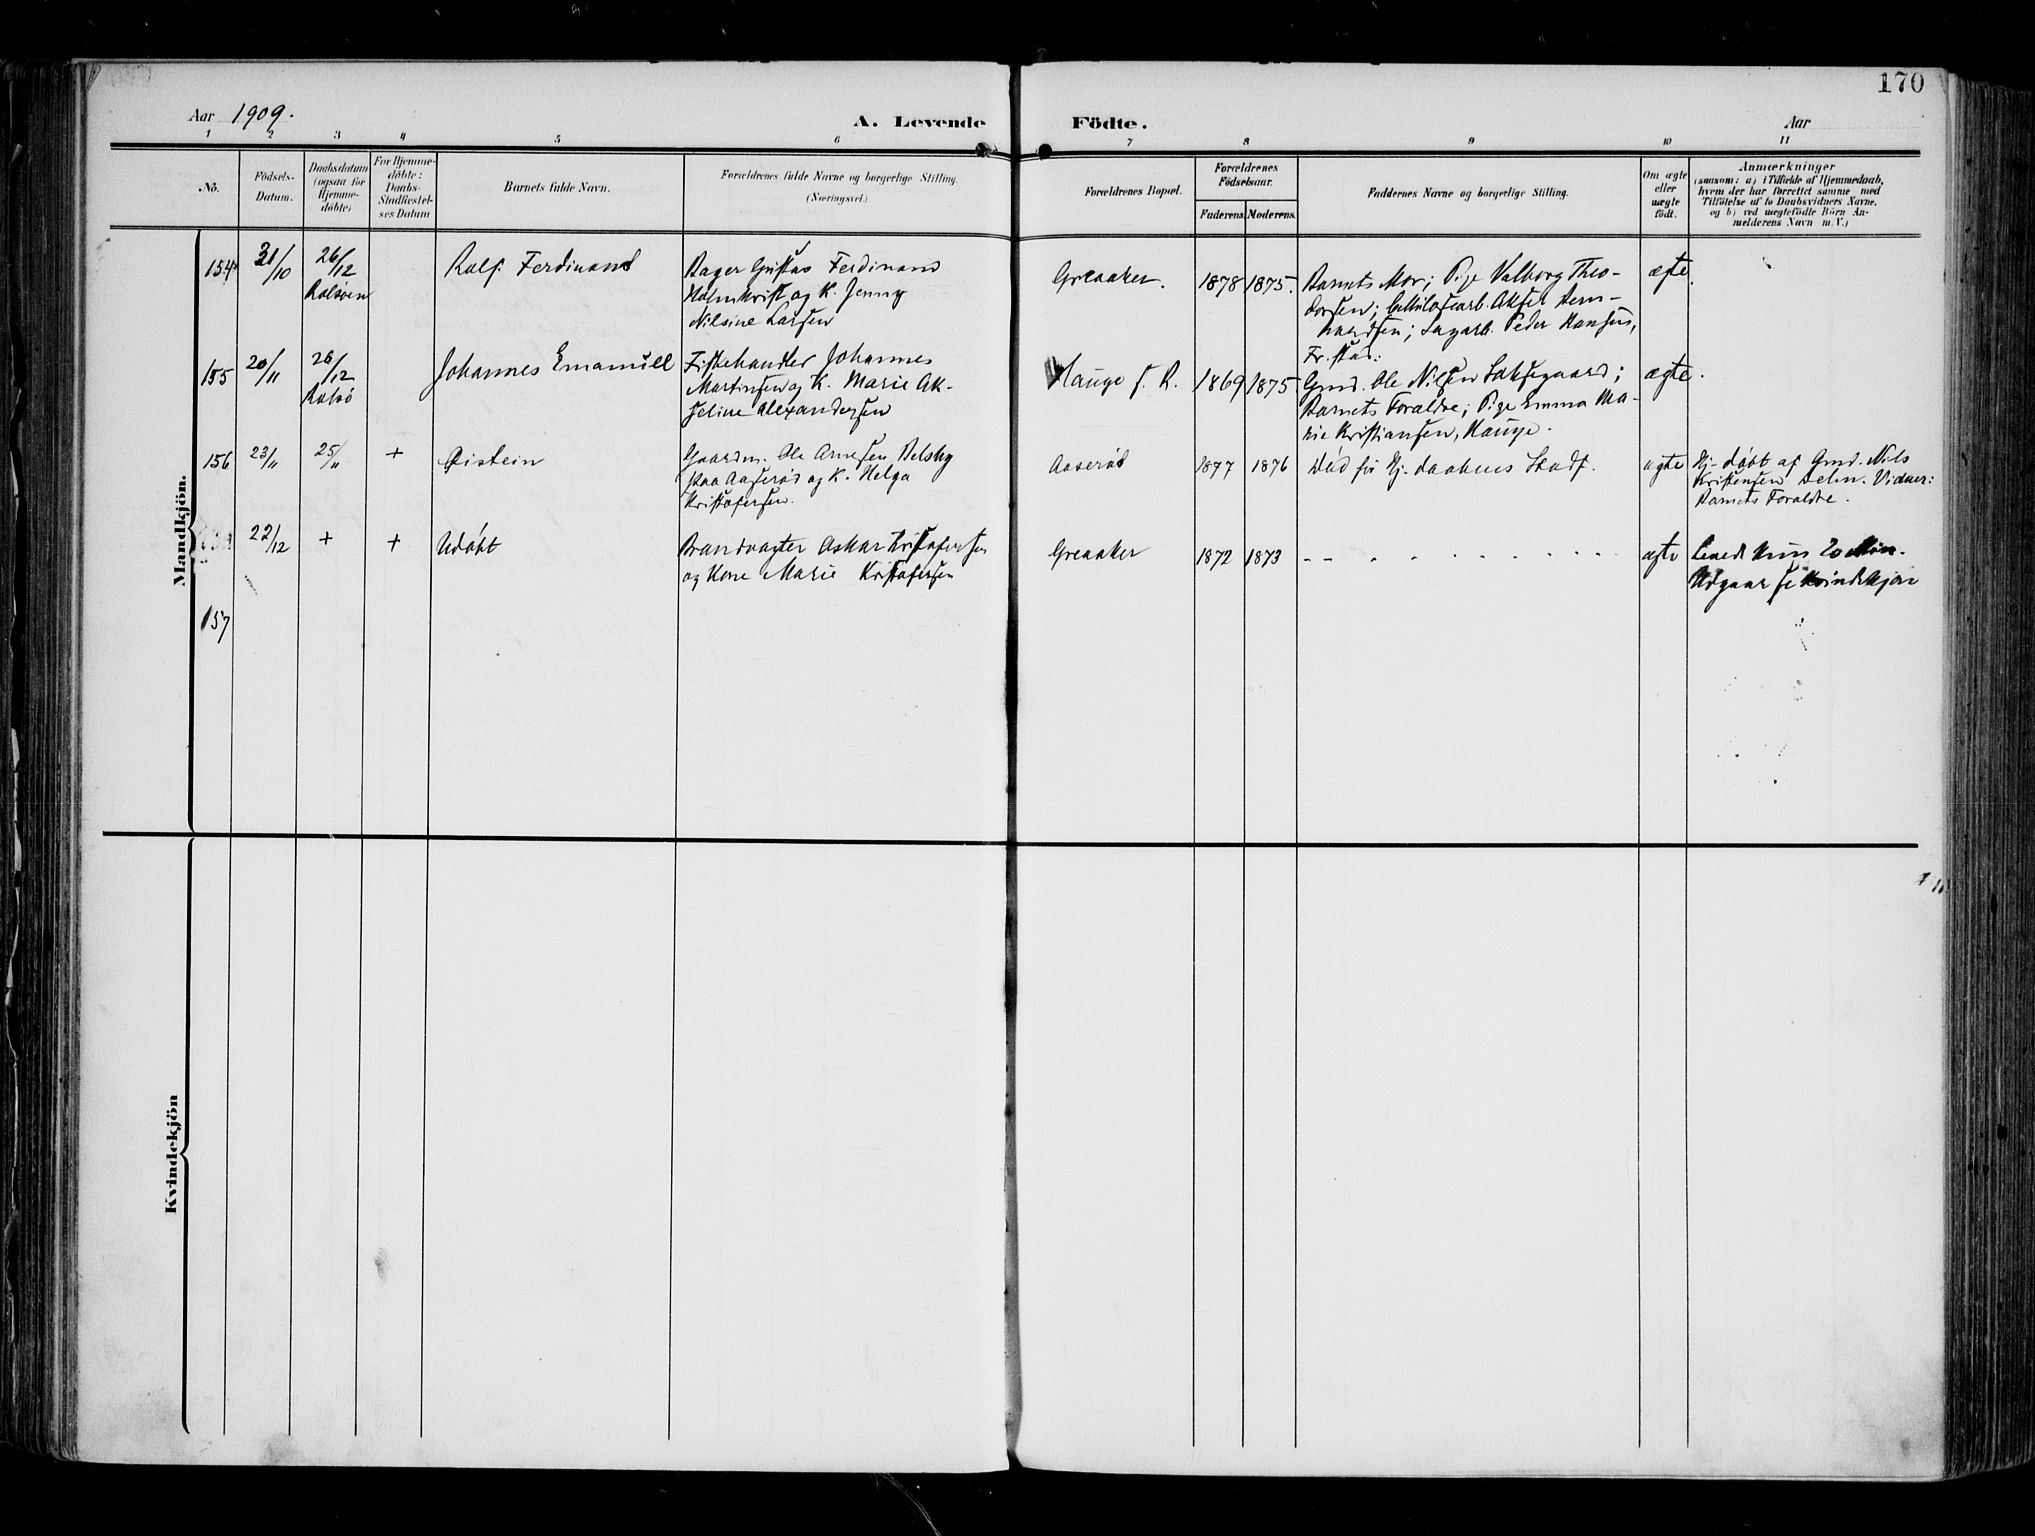 170
Aar 1909.
A. Levende Födte.
Aar
1 2 3 4 5 6 7 8 9 10 11
No.
Födsels-
Datum.
Daabsdatum
(ogsaa for
Hjemme-
döbte)
For Hjemme-
döbte:
Daabs-
Stadfæstel-
ses Datum
Barnets fulde Navn.
Forældrenes fulde Navne og borgerlige Stilling.
(Næringsvei.)
Forældrenes Bopæl.
Forældrenes
Födselsaar.
Faderens. Moderens.
Faddernes Navne og borgerlige Stilling.
Om ægte
eller
uægte
født.
Anmærkninger
(saasom: a) i Tilfælde af Hjemmedaab,
hvem der har forrettet samme med
Tilföielse af to Daabsvidners Navne,
og b) ved uægtefödte Börn An-
melderens Navn m. V.)
Mandkjön.
154 31/10 26/12
Rolsøen
Rolf Ferdinand
Bager Gustav Ferdinand
Holmkvist og K. Jenny
Nilsine Larsen
Greaaker. 1878 1875.
Barnets Mor; Pige Valborg Theo-
dorsen; Cellulosearb. Aksel Bern-
hardsen; Sagarb. Peder Hansen,
Fr.stad.
ægte.
155 20/11 26/12
Rolsø
Johannes Emanuel
Fiskehandler Johannes
Martinsen og K. Marie Ak-
seline Alexandersen
Hauge f. R. 1869 1875
Gmd. Ole Nilsen Saksegaard;
Barnets Foraldre; Pige Emma Ma-
rie Kristiansen, Hauge.
ægte.
156 23/11 25/11 +
Øistein
Gaardm. Ole Arnesen Velsby
paa Aaserød og K. Helga
Kristofersen.
Aaserød 1877 1876
Død før Hj-daabens Stadf.
ægte
Hj-døbt af Gmd. Nils
Kristensen Vidner:
Barnets Foraldre.
22/12 + +
Udøbt
Brandvagter Oskar Kristofersen
og Kone Marie Kristofersen
Greaaker 1872 1873
ægte
Levede kun 20 Min.
Udgaar se Kvindekjøn
157
Kvindekjön